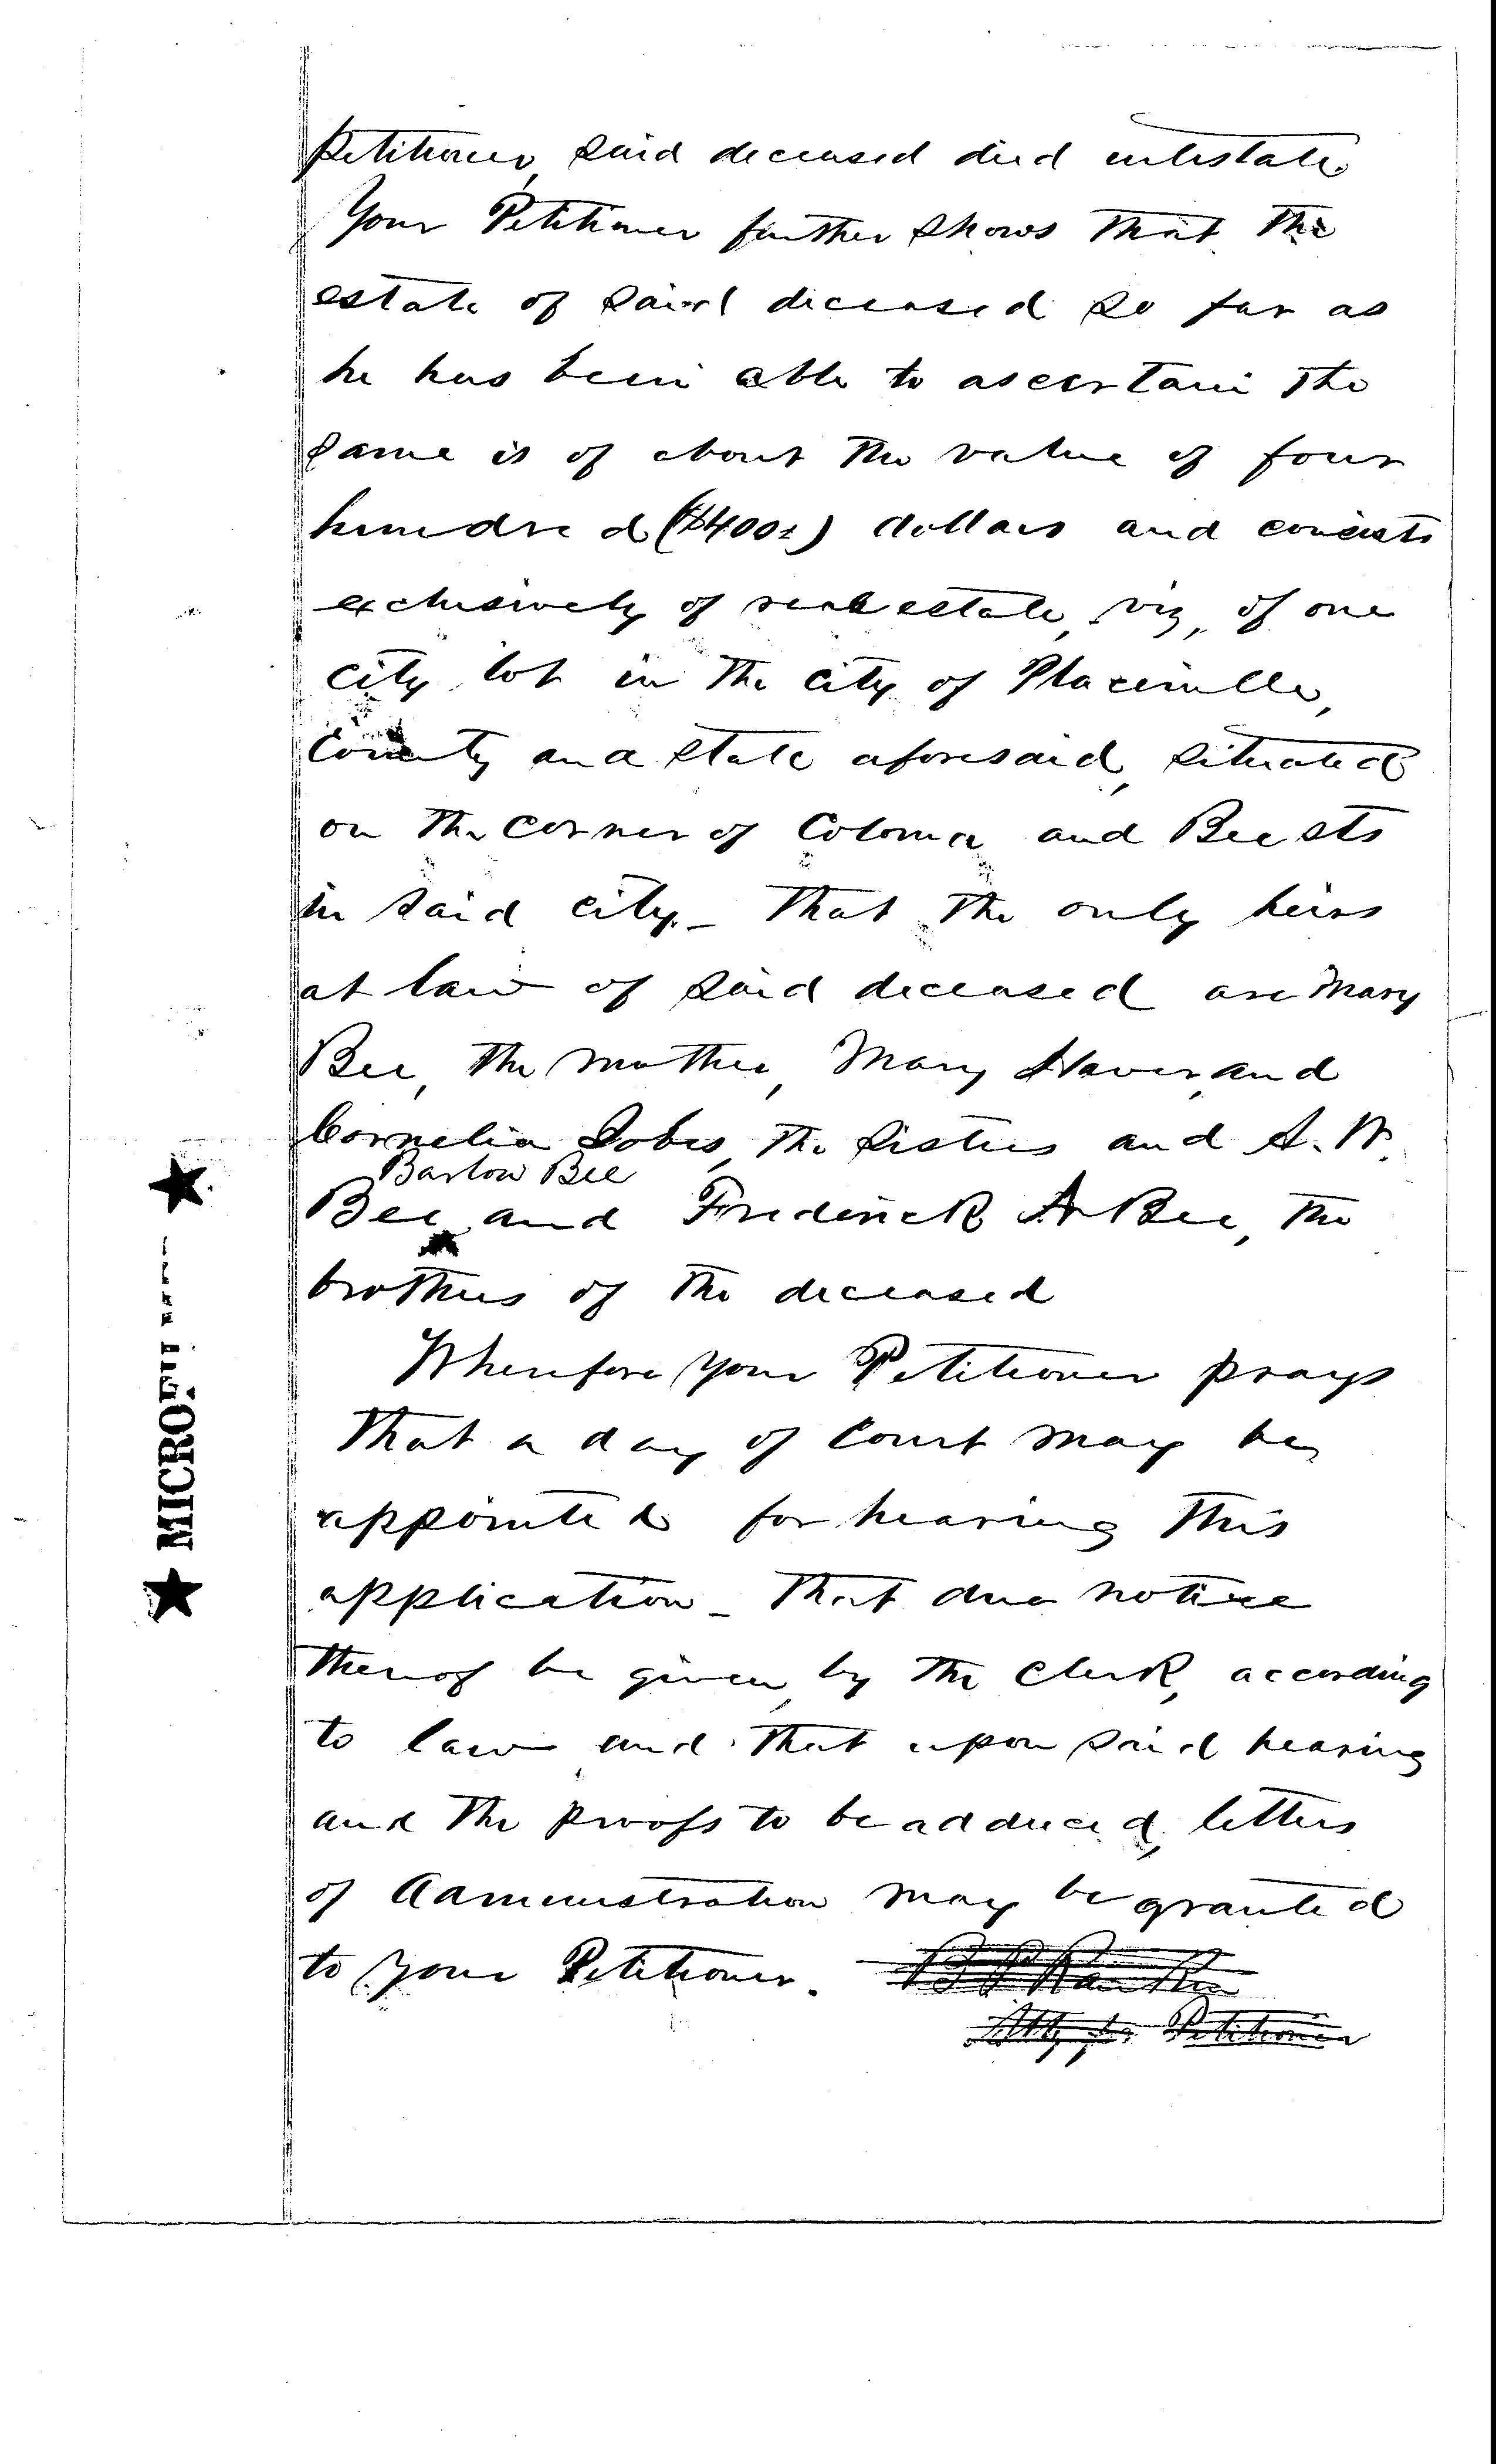 Petitioner, said deceased died intestate.
Your Petitioner further shows that the
estate of said deceased so far as
he has been able to ascertain the
same is of about the value of four
hundred ($400 ) dollars and consists
exclusively of real estate, viz, of one
city lot in the city of Placerville,
County and state aforesaid, situated
on the corner of Coloma and Bee sts
in said city - That the only heirs
at law of said deceased are Mary
Bee, the mother, Mary and
Cornelia the sisters and A. W.
Barlow Bee
Bee, and Frederick A Bee, the
brothers of the deceased
Wherefore your Petitioner prays
That a day of Court may be
appointed for hearing this
application - That due notice
thereof be given, by the Clerk, according
to law and that upon said hearing
and the proofs to be adduced, letters
of Administration may be granted
to your Petitioner.
Atty for Petitioner
★ MICRO
★